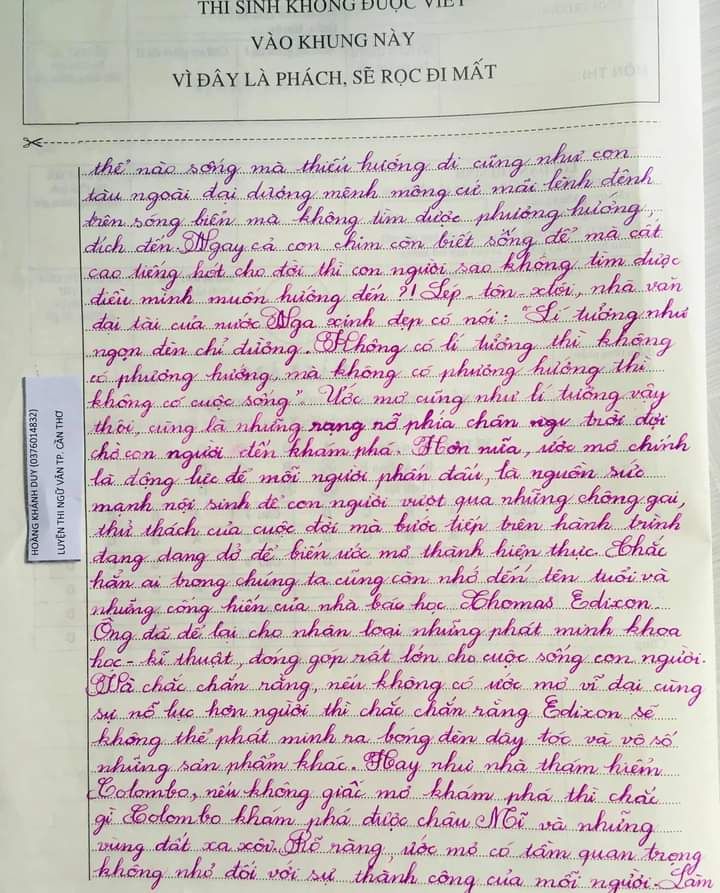 THÍ SINH KHÔNG ĐƯỢC VIẾT
VÀO KHUNG NÀY
VÌ ĐÂY LÀ PHÁCH, SẼ RỌC ĐI MẤT
thể nào sống mà thiếu hướng đi cũng như con
tàu ngoài đại dương mênh mông cứ mãi lênh đênh
trên sóng biển mà không tìm được phương hướng,
đích đến. Ngay cả con chim còn biết sống để mà cất
cao tiếng hót cho đời thì con người sao không tìm được
điều mình muốn hướng đến ?! Lép-tôn-xtôi, nhà văn
đại tài của nước Nga xinh đẹp có nói: "Lí tưởng như
ngọn đèn chỉ đường. Không có lí tưởng thì không
có phương hướng, mà không có phương hướng thì
không có cuộc sống". Ước mơ cũng như lí tưởng vậy
thôi, cũng là những rạng rỡ phía chân trời đợi
chờ con người đến khám phá. Hơn nữa, ước mơ chính
là động lực để mỗi người phấn đấu, là nguồn sức
mạnh nội sinh để con người vượt qua những chông gai,
thử thách của cuộc đời mà bước tiếp trên hành trình
đang dang dở để biến ước mơ thành hiện thực. Chắc
hẳn ai trong chúng ta cũng còn nhớ đến tên tuổi và
những cống hiến của nhà bác học Thomas Edixon.
Ông đã để lại cho nhân loại những phát minh khoa
học - kĩ thuật, đóng góp rất lớn cho cuộc sống con người.
Và chắc chắn rằng, nếu không có ước mơ vĩ đại cùng
sự nỗ lực hơn người thì chắc chắn rằng Edixon sẽ
không thể phát minh ra bóng đèn dây tóc và vô số
những sản phẩm khác. Hay như nhà thám hiểm
Colombo, nếu không giấc mơ khám phá thì chắc
gì Colombo khám phá được châu Mĩ và những
vùng đất xa xôi. Rõ ràng, ước mơ có tầm quan trọng
không nhỏ đối với sự thành công của mỗi người. Làm
HOÀNG KHÁNH DUY (0376014832)
LUYỆN THI NGỮ VĂN TP. CẦN THƠ